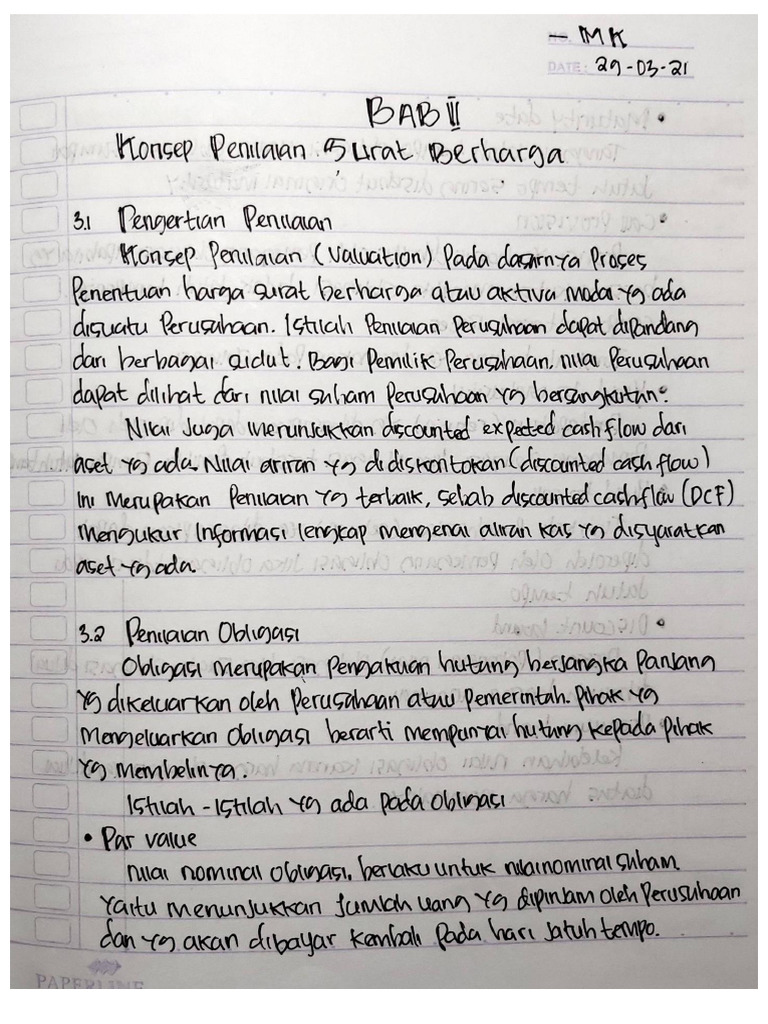 NO. MK
DATE: 29-03-21
BAB III
Konsep Penilaian Surat Berharga
3.1 Pengertian Penilaian
Konsep Penilaian (Valuation) Pada dasarnya Proses
Penentuan harga surat berharga atau aktiva modal yg ada
disuatu Perusahaan. Istilah Penilaian Perusahaan dapat dipandang
dari berbagai sudut. Bagi Pemilik Perusahaan, nilai Perusahaan
dapat dilihat dari nilai saham Perusahaan yg bersangkutan.
Nilai Juga menunjukkan discounted expected cash flow dari
aset yg ada. Nilai aliran yg didiskontokan (discounted cash flow)
Ini Merupakan Penilaian yg terbaik, sebab discounted cashflow (DCF)
Mengukur Informasi lengkap mengenai aliran kas yg disyaratkan
aset yg ada.
3.2 Penilaian Obligasi
Obligasi merupakan Pengakuan hutang berjangka Panjang
yg dikeluarkan oleh Perusahaan atau Pemerintah. Pihak yg
Mengeluarkan Obligasi berarti mempunyai hutang kepada Pihak
yg membelinya.
Istilah - Istilah yg ada pada obligasi
• Par value
nilai nominal obligasi, berlaku untuk nilai nominal saham.
yaitu menunjukkan Jumlah uang yg dipinjam oleh Perusahaan
dan yg akan dibayar kembali pada hari Jatuh tempo.
PAPERLINE